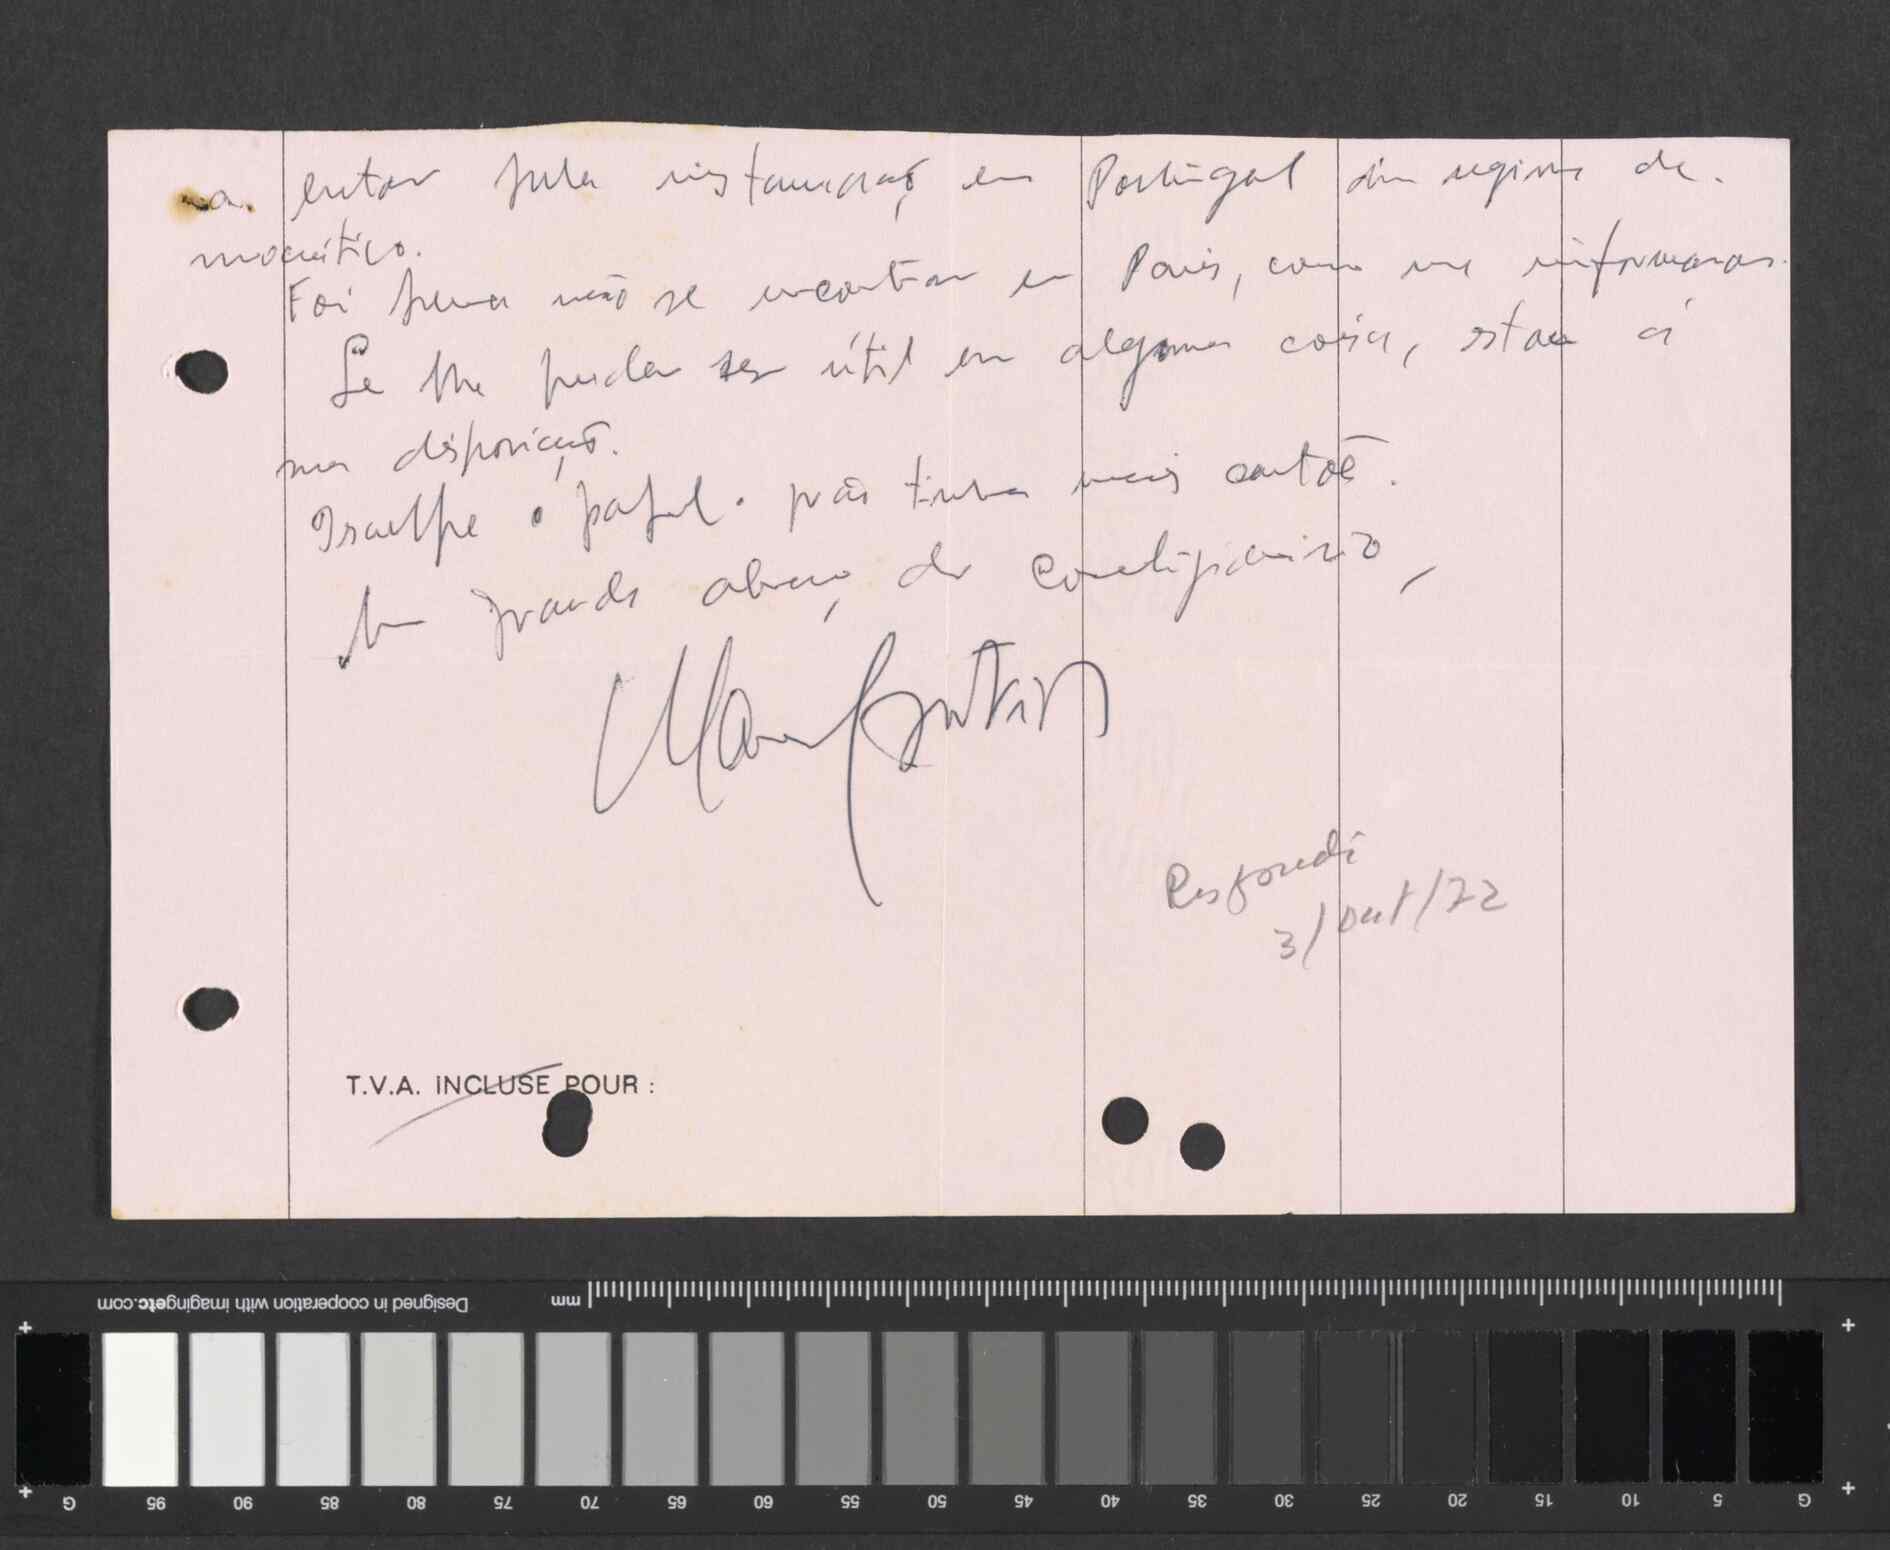 entar pela instauração em Portugal dum regime de-
mocrático.
Foi pena não se encontrar em Paris, como me informaram.
Se lhe puder ser útil em alguma coisa, estou à
sua disposição.
Desculpe o papel. não tinha mais cartão.
Um grande abraço do
Respondi
3/out/72
T.V.A. INCLUSE POUR :
Designed in cooperation with imagingetc.com
mm
G 95 90 85 80 75 70 65 60 55 50 45 40 35 30 25 20 15 10 5 G